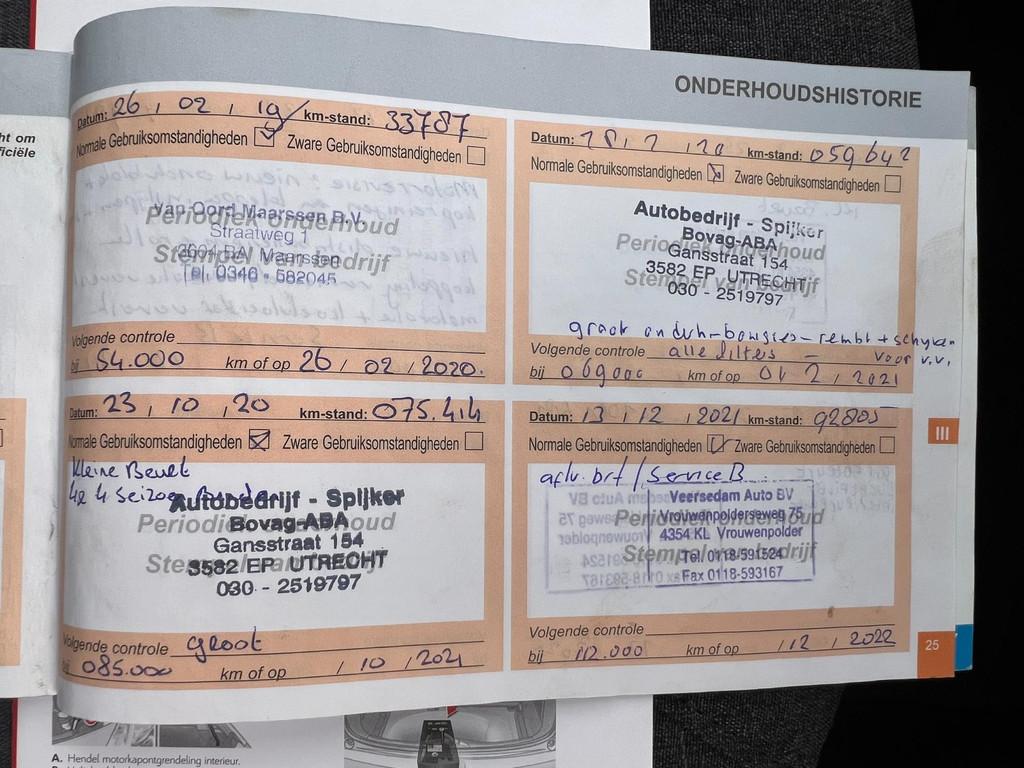 ht om
ficiële
ONDERHOUDSHISTORIE
Datum: 26 / 02 / 19 km-stand: 33787
Normale Gebruiksomstandigheden Zware Gebruiksomstandigheden
Van Oord Maarssen B.V.
Periodiek onderhoud
Straatweg 1
Stempel van bedrijf
Maarssen
Tel. 0346 - 582045
Volgende controle
bij 54.000 km of op 26 / 02 / 2020.
Datum: 18 / 2 / 20 km-stand: 059642
Normale Gebruiksomstandigheden Zware Gebruiksomstandigheden
Autobedrijf - Spijker
Bovag-ABA
Periodiek onderhoud
Gansstraat 154
3582 EP UTRECHT
Stempel van bedrijf
030 - 2519797
groot onderh-bougies-rembl + schyven
Volgende controle alle filters - voor v.v.
bij 069000 km of op 01 2 / 2021
Datum: 23 / 10 / 20 km-stand: 075.414
Normale Gebruiksomstandigheden Zware Gebruiksomstandigheden
Kleine Beurt
4x 4 Seizoen Banden
Autobedrijf - Spijker
Bovag-ABA
Periodiek onderhoud
Gansstraat 154
Stempel van bedrijf
3582 EP UTRECHT
030 - 2519797
Volgende controle groot
bij 085.000 km of op / 10 / 2021
Datum: 13 / 12 / 2021 km-stand: 92805
Normale Gebruiksomstandigheden Zware Gebruiksomstandigheden
aflv. brt / Service B
Veersedam Auto BV
Vrouwenpolderseweg 75
Periodiek onderhoud
4354 KL Vrouwenpolder
Stempel van bedrijf
Tel. 0118-591524
Fax 0118-593167
Volgende controle
bij 112.000 km of op / 12 / 2022
III
25
A. Hendel motorkapontgrendeling interieur.